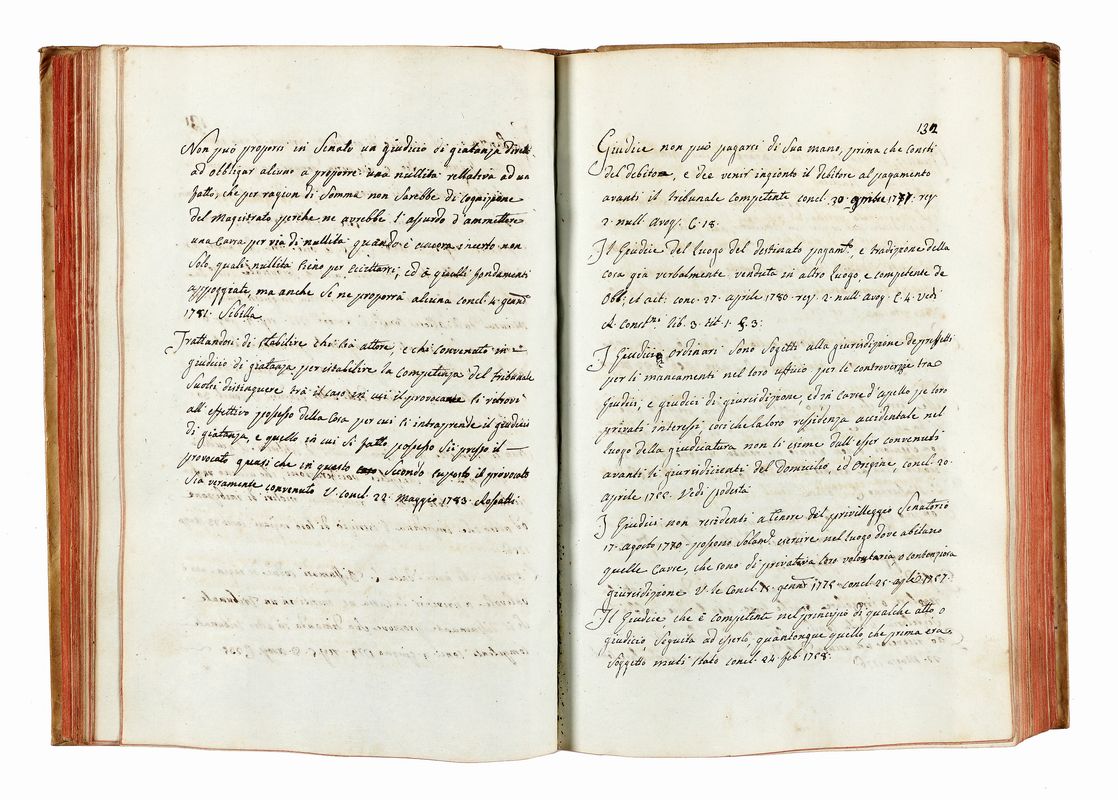 Non può proporsi in Senato un giudicio di giatanza diretto
ad obbligar alcuno a proporre una nullità rellativa ad un
fatto, che per ragion di Somma non Sarebbe di cognizione
del Magistrato perché ne avrebbe l'assurdo d'ammettere
una Causa per via di nullità quando è ancora incerto non
Solo quali nullità sieno per eccittarsi, ed a quelli fondamenti
appoggiate, ma anche Se ne proporrà alcuna concl. 4. genn.o
1781. Sibilla
Trattandosi di stabilire chi sia attore, e chi convenuto in
giudicio di giatanza per istabilire la Competenza del tribunale
Suolsi distinguere trà il caso in cui il provocante si ritrovi
all'effettivo possesso della Cosa per cui s'intraprende il giudicio
di giatanza, e quello in cui Si fatto possesso Sii presso il
provocato quasi che in questo Secondo Supposto il provocato
Sia veramente convenuto V. concl. 22. Maggio 1783. Rossatti
132
Giudice non può pagarsi di Sua mano, prima che consti
del debito, e dee venir ingionto il debitore al pagamento
avanti il tribunale competente concl. 20. 9mbre 1787. reg.
2. null. avog. C. 18.
Il Giudice del luogo del destinato pagam.to, e tradizione della
cosa già verbalmente venduta in altro luogo, e competente de
Obb: et act. conc. 27. aprile 1780. reg. 2. null. avog. C. 4. Vedi
R. Const.ni lib. 3. tit. 1. §. 3.
I Giudici Ordinari Sono Sogetti alla giurisdizione de prefetti
per li mancamenti nel loro uffizio per le controversie tra
Giudici, e giudici di giurisdizione, ed in Cause d'apello pe loro
privati interessi, così che la loro residenza accidentale nel
luogo della giudicatura non li esime dall'esser convenuti
avanti li giurisdicenti del Domicilio, ed Origine concl. 20.
aprile Vedi podestà
I Giudici non residenti a tenore del privilleggio Senatorio
17. agosto 1770. possono Solam.te esercire nel luogo dove abitano
quelle Cause, che sono di privativa loro volontaria o contenziosa
giurisdizione V. le Concl. genn.o concl. 1757.
Il Giudice, che è competente nel principio di qualche atto o
giudicio, Seguita ad esserlo, quantonque quello che prima era
Soggetto muti stato concl. 24. feb.